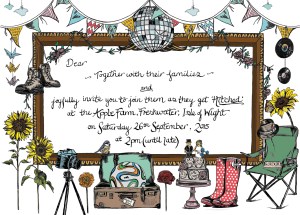 Dear
~ Together with their families ~
and
joyfully invite you to join them as they get 'Hitched'
at the Apple Farm, Freshwater, Isle of Wight
on Saturday 26th September, 2015
at 2pm (until late)